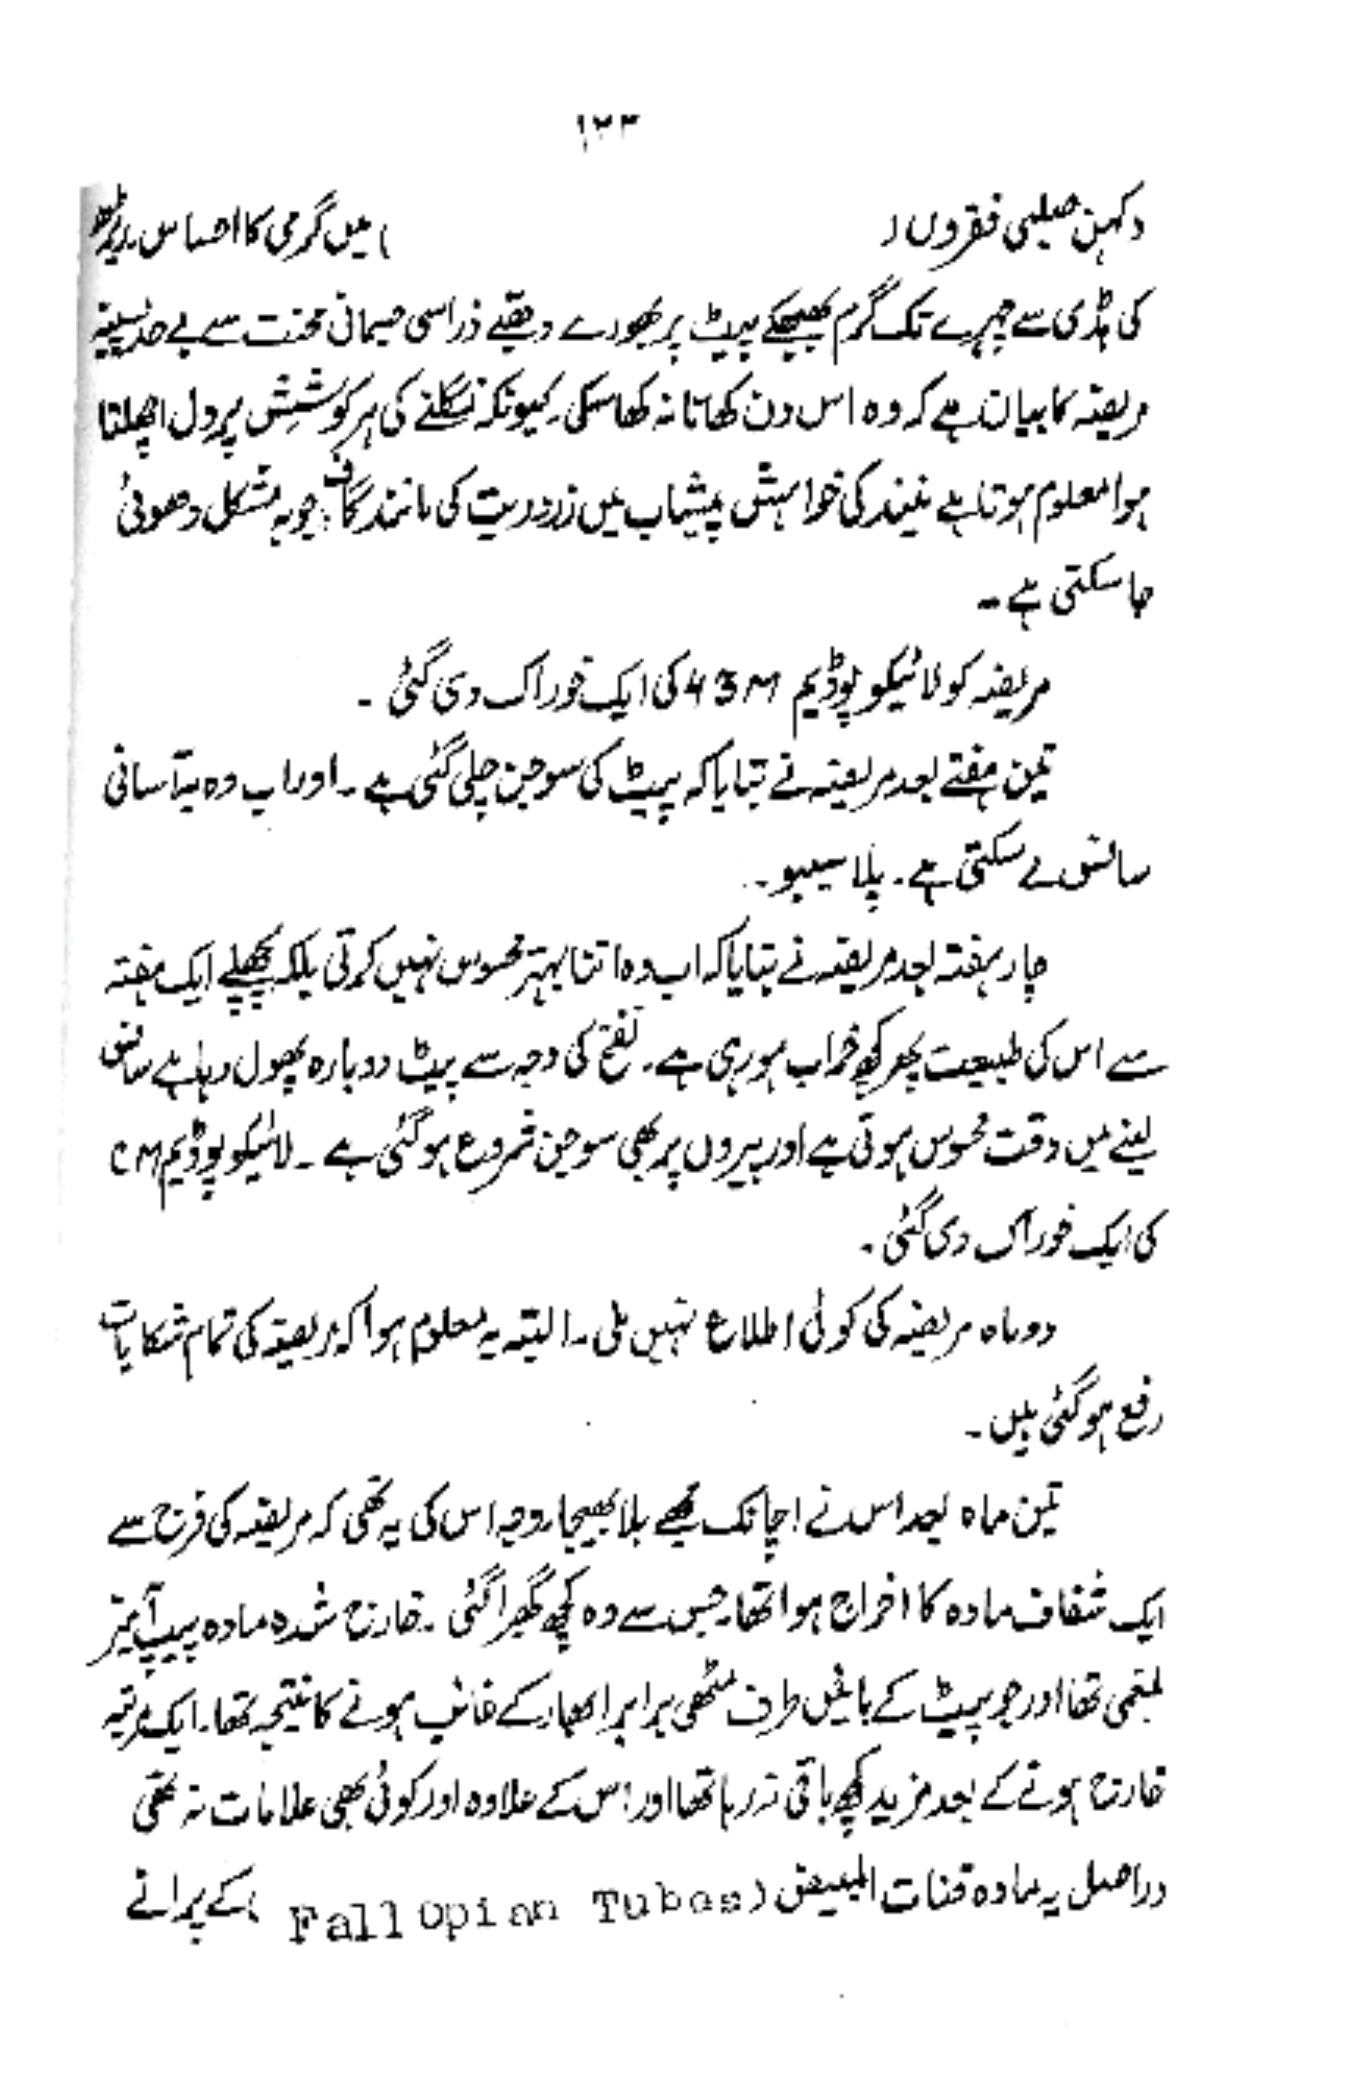 ۱۲۳
دکہن صلیبی فقروں ( ) میں گرمی کا احساس ۔ ریڑھ
کی ہڈی سے چہرے تک گرم بھبھکے پیٹ پر بھورے دھبے ذراسی جسمانی محنت سے بے حد پسینہ
مریضہ کا بیان ہے کہ وہ اس دن کھانا نہ کھاسکی ۔ کیونکہ نگلنے کی ہر کوشش پر دل اچھلتا
ہوا معلوم ہوتا ہے نیند کی خواہش پیشاب میں زرد ریت کی مانند گاد جو بہ مشکل دھوئی
جاسکتی ہے ۔
مریضہ کو لائیکو پوڈیم 43M کی ایک خوراک دی گئی ۔
تین ہفتے بعد مریضہ نے بتایا کہ پیٹ کی سوجن چلی گئی ہے ۔ اور اب وہ بآسانی
سانس لے سکتی ہے ۔ پلاسیبو ۔
چار ہفتہ بعد مریضہ نے بتایا کہ اب وہ اتنا بہتر محسوس نہیں کرتی بلکہ پچھلے ایک ہفتہ
سے اس کی طبیعت پھر کچھ خراب ہورہی ہے ۔ نفخ کی وجہ سے پیٹ دوبارہ پھول رہا ہے سانس
لینے میں دقت محسوس ہوتی ہے اور پیروں پر بھی سوجن شروع ہوگئی ہے ۔ لائیکو پوڈیم CM
کی ایک خوراک دی گئی ۔
دوماہ مریضہ کی کوئی اطلاع نہیں ملی ۔ البتہ یہ معلوم ہوا کہ مریضہ کی تمام شکایات
رفع ہوگئی ہیں ۔
تین ماہ بعد اس نے اچانک مجھے بلا بھیجا ۔ وجہ اس کی یہ تھی کہ مریضہ کی فرج سے
ایک شفاف مادہ کا اخراج ہوا تھا ۔ جس سے وہ کچھ گھبرا گئی ۔ خارج شدہ مادہ پیپ آمیز
بلغمی تھا اور جو پیٹ کے بائیں طرف مٹھی برابر ابھار کے غائب ہونے کا نتیجہ تھا ۔ ایک مرتبہ
خارج ہونے کے بعد مزید کچھ باقی نہ رہا تھا اور اس کے علاوہ اور کوئی بھی علامات نہ تھی
دراصل یہ مادہ قنات المبیض (Fallopian Tubes) کے پرانے